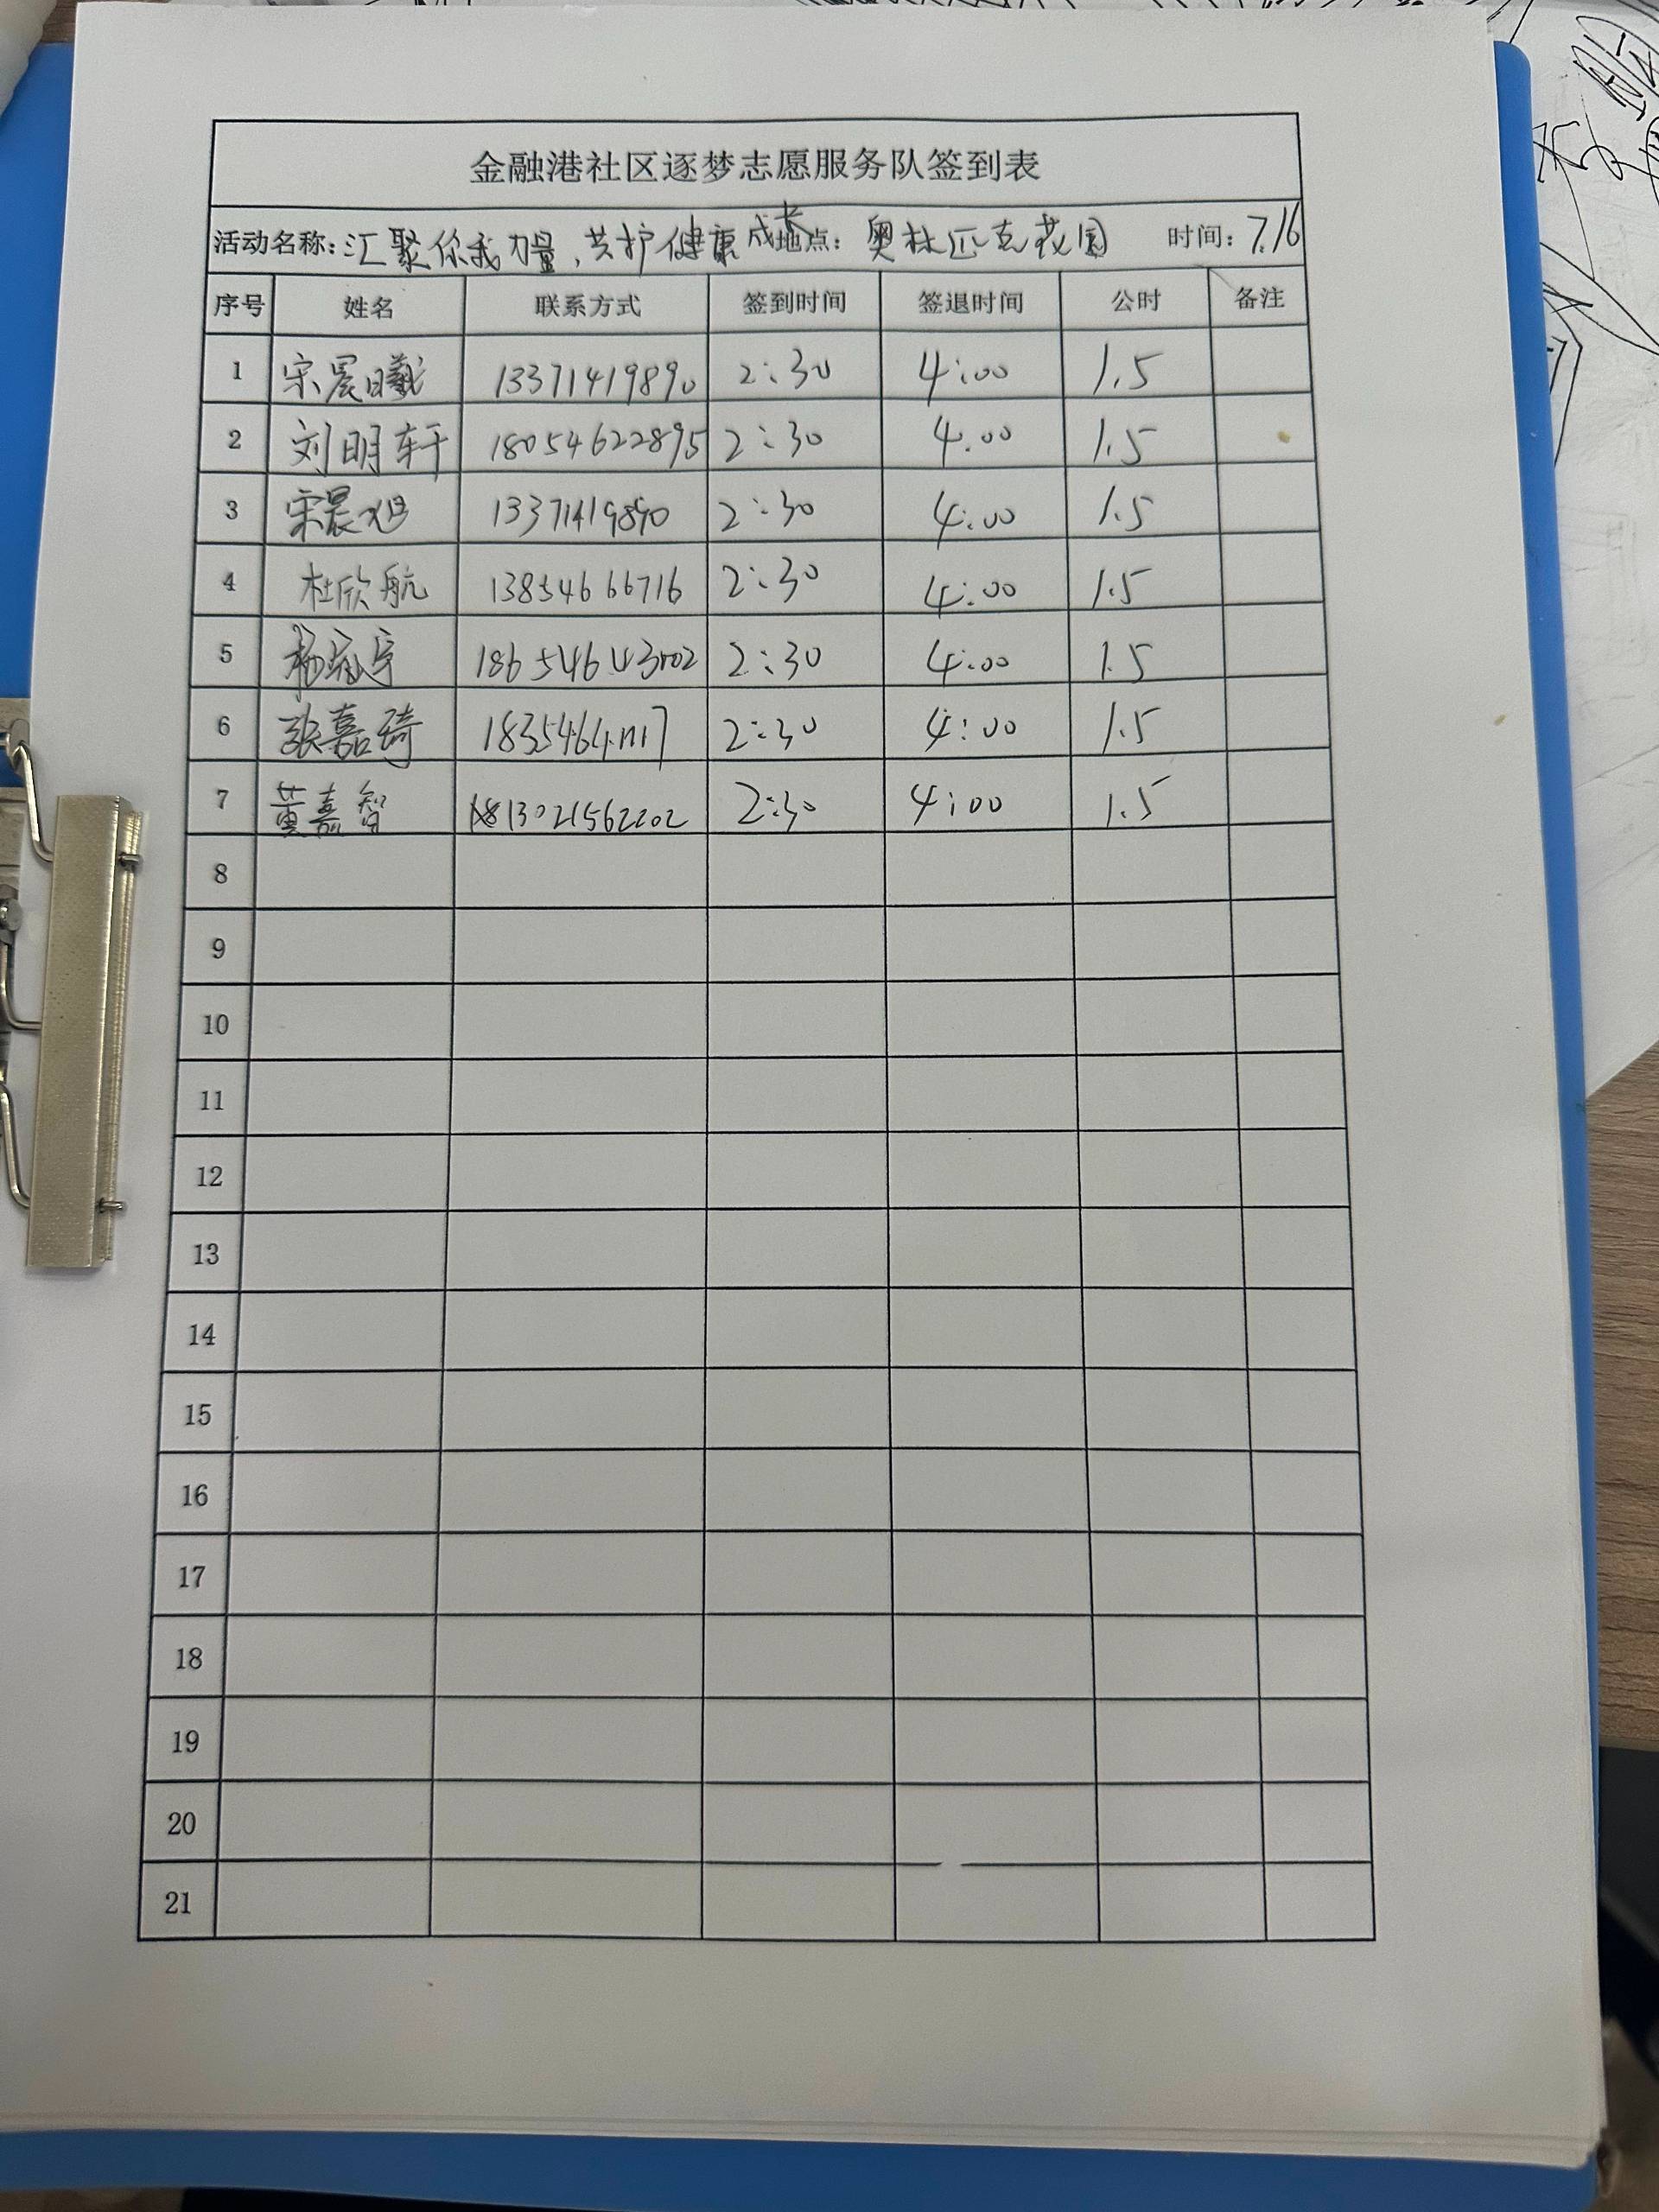 金融港社区逐梦志愿服务队签到表
活动名称：汇聚你我力量，共护健康成长 地点：奥林匹克花园 时间：7.16
序号 姓名 联系方式 签到时间 签退时间 公时 备注
1 宋晨曦 13371419890 2:30 4:00 1.5
2 刘明轩 18054622895 2:30 4.00 1.5
3 宋晨旭 13371419890 2:30 4:00 1.5
4 杜欣航 13854666716 2:30 4:00 1.5
5 2:30 4:00 1.5
6 张嘉琦 2:30 4:00 1.5
7 黄嘉智 13021562202 2:30 4:00 1.5
8
9
10
11
12
13
14
15
16
17
18
19
20
21